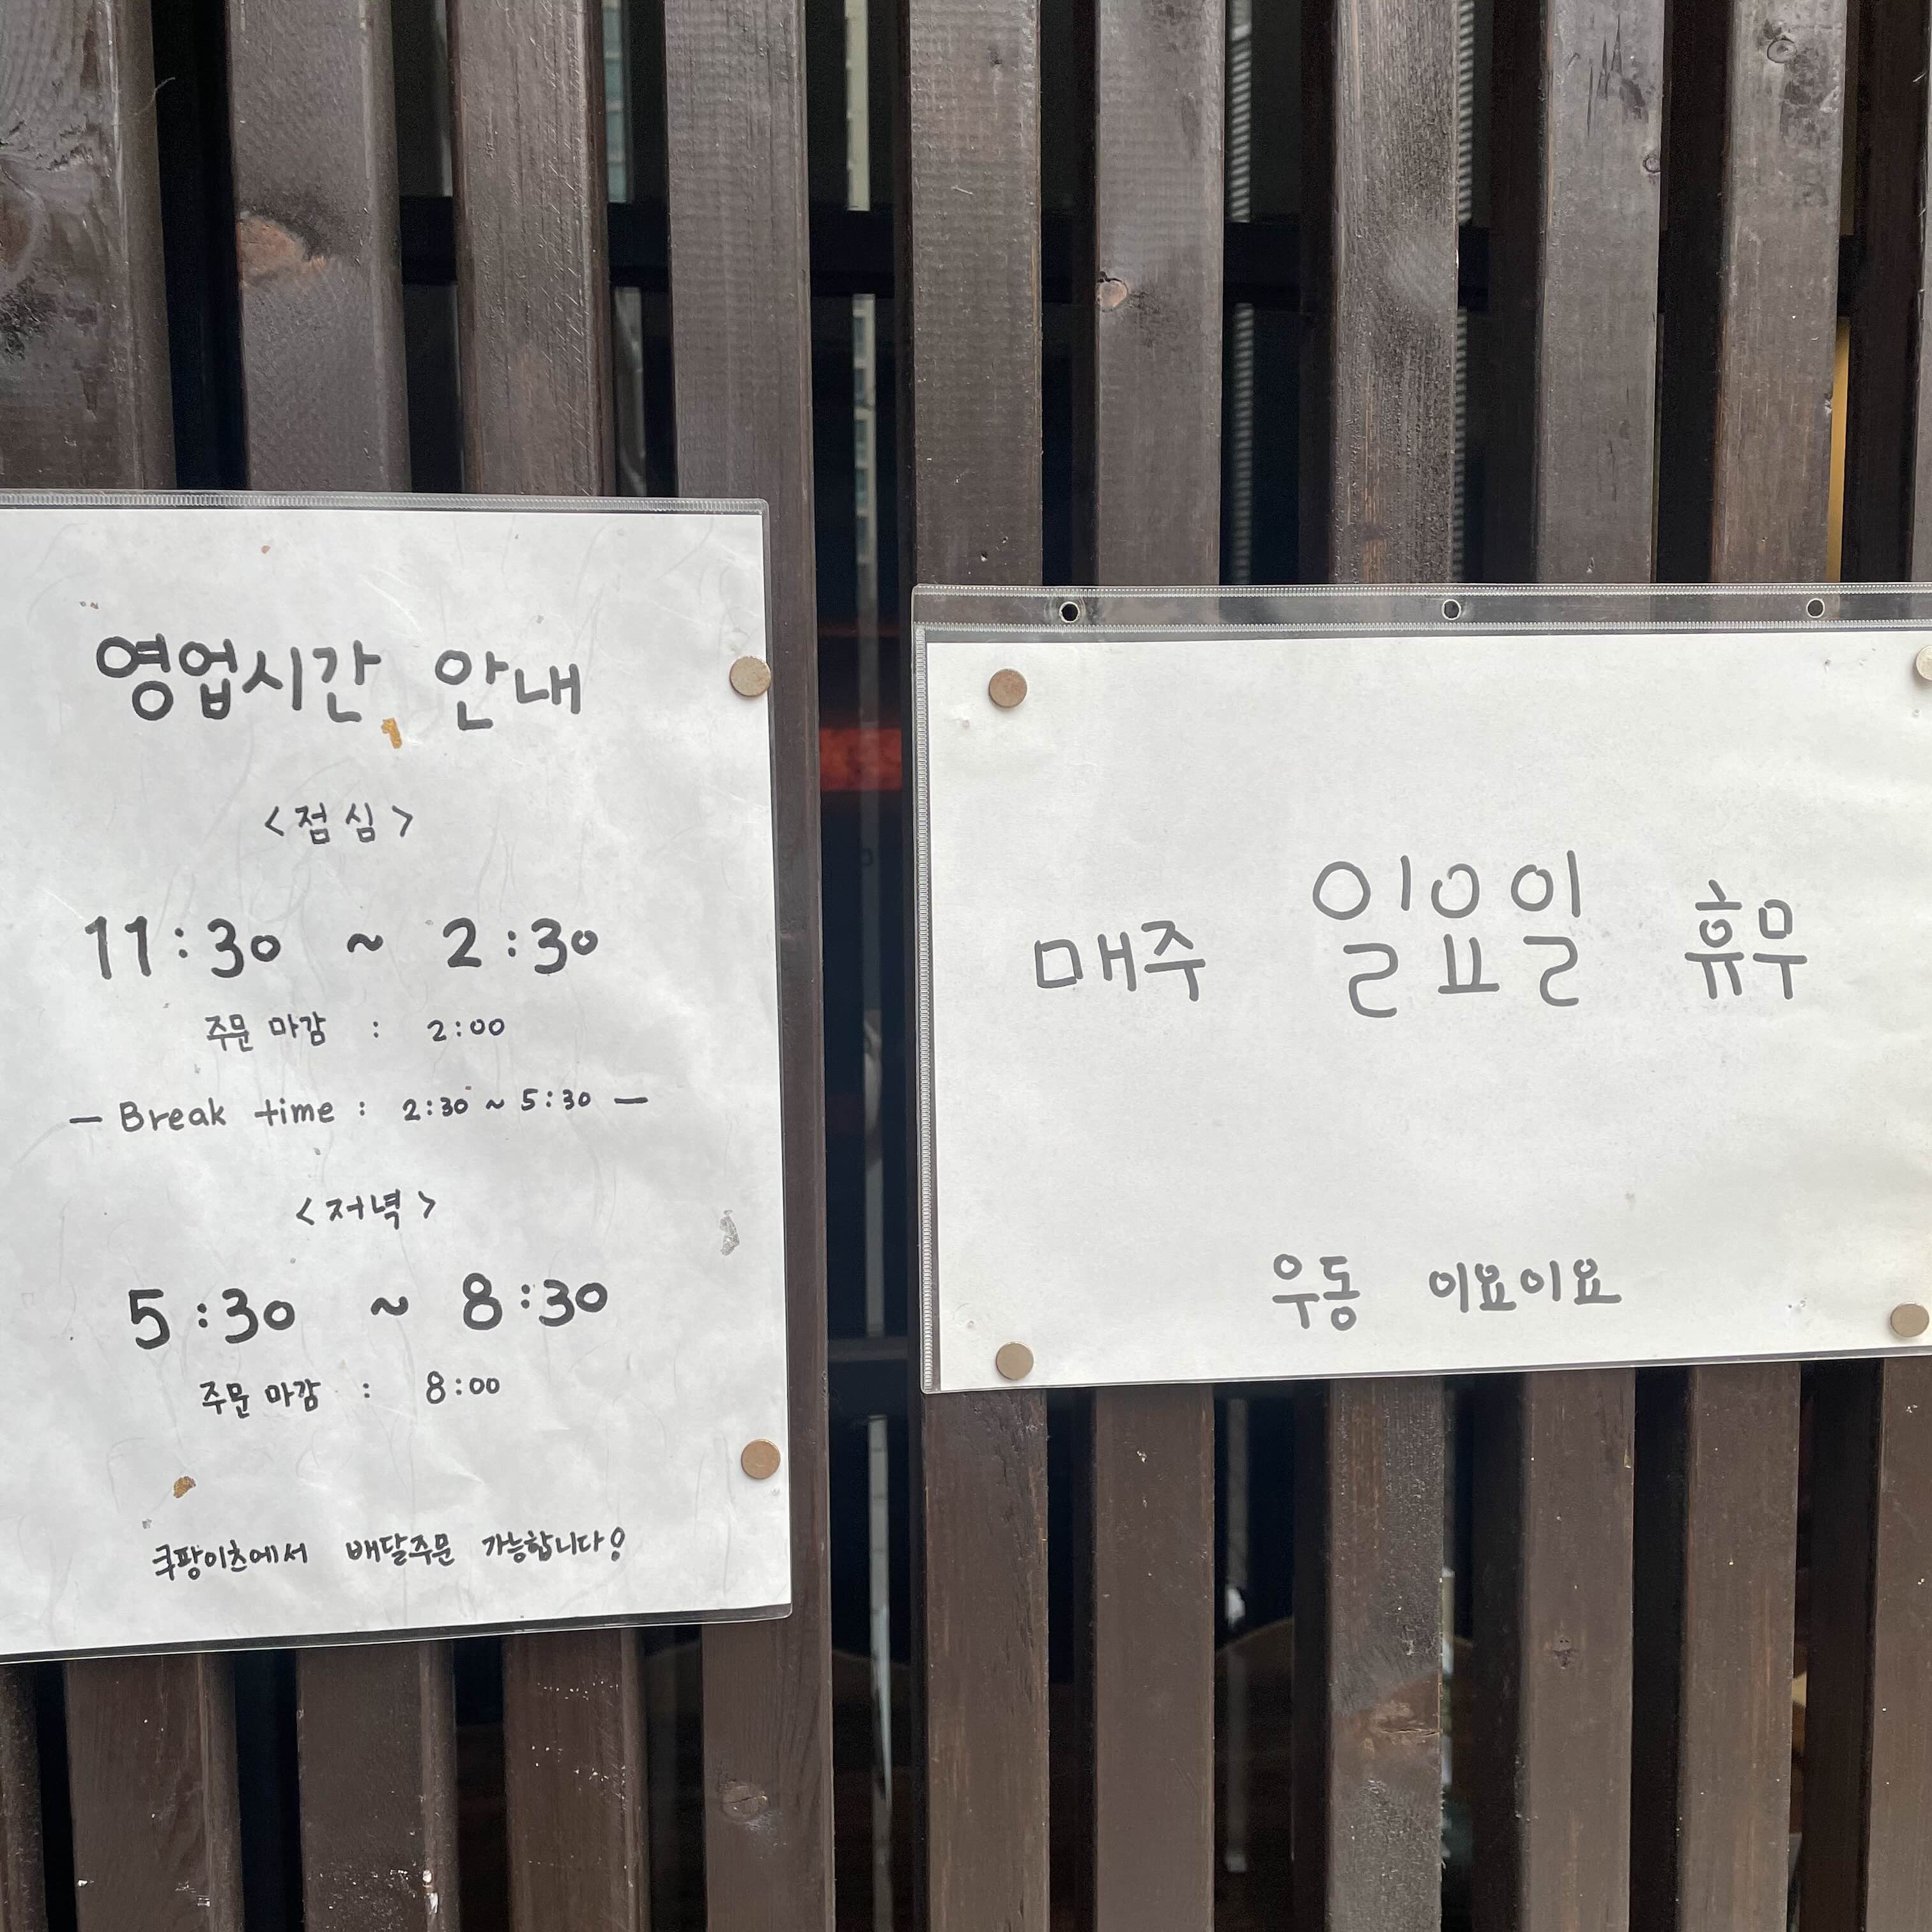 영업시간 안내
<점심>
11:30 ~ 2:30
주문 마감 : 2:00
— Break time : 2:30 ~ 5:30 —
<저녁>
5:30 ~ 8:30
주문 마감 : 8:00
쿠팡이츠에서 배달주문 가능합니다!
매주 일요일 휴무
우동 이요이요